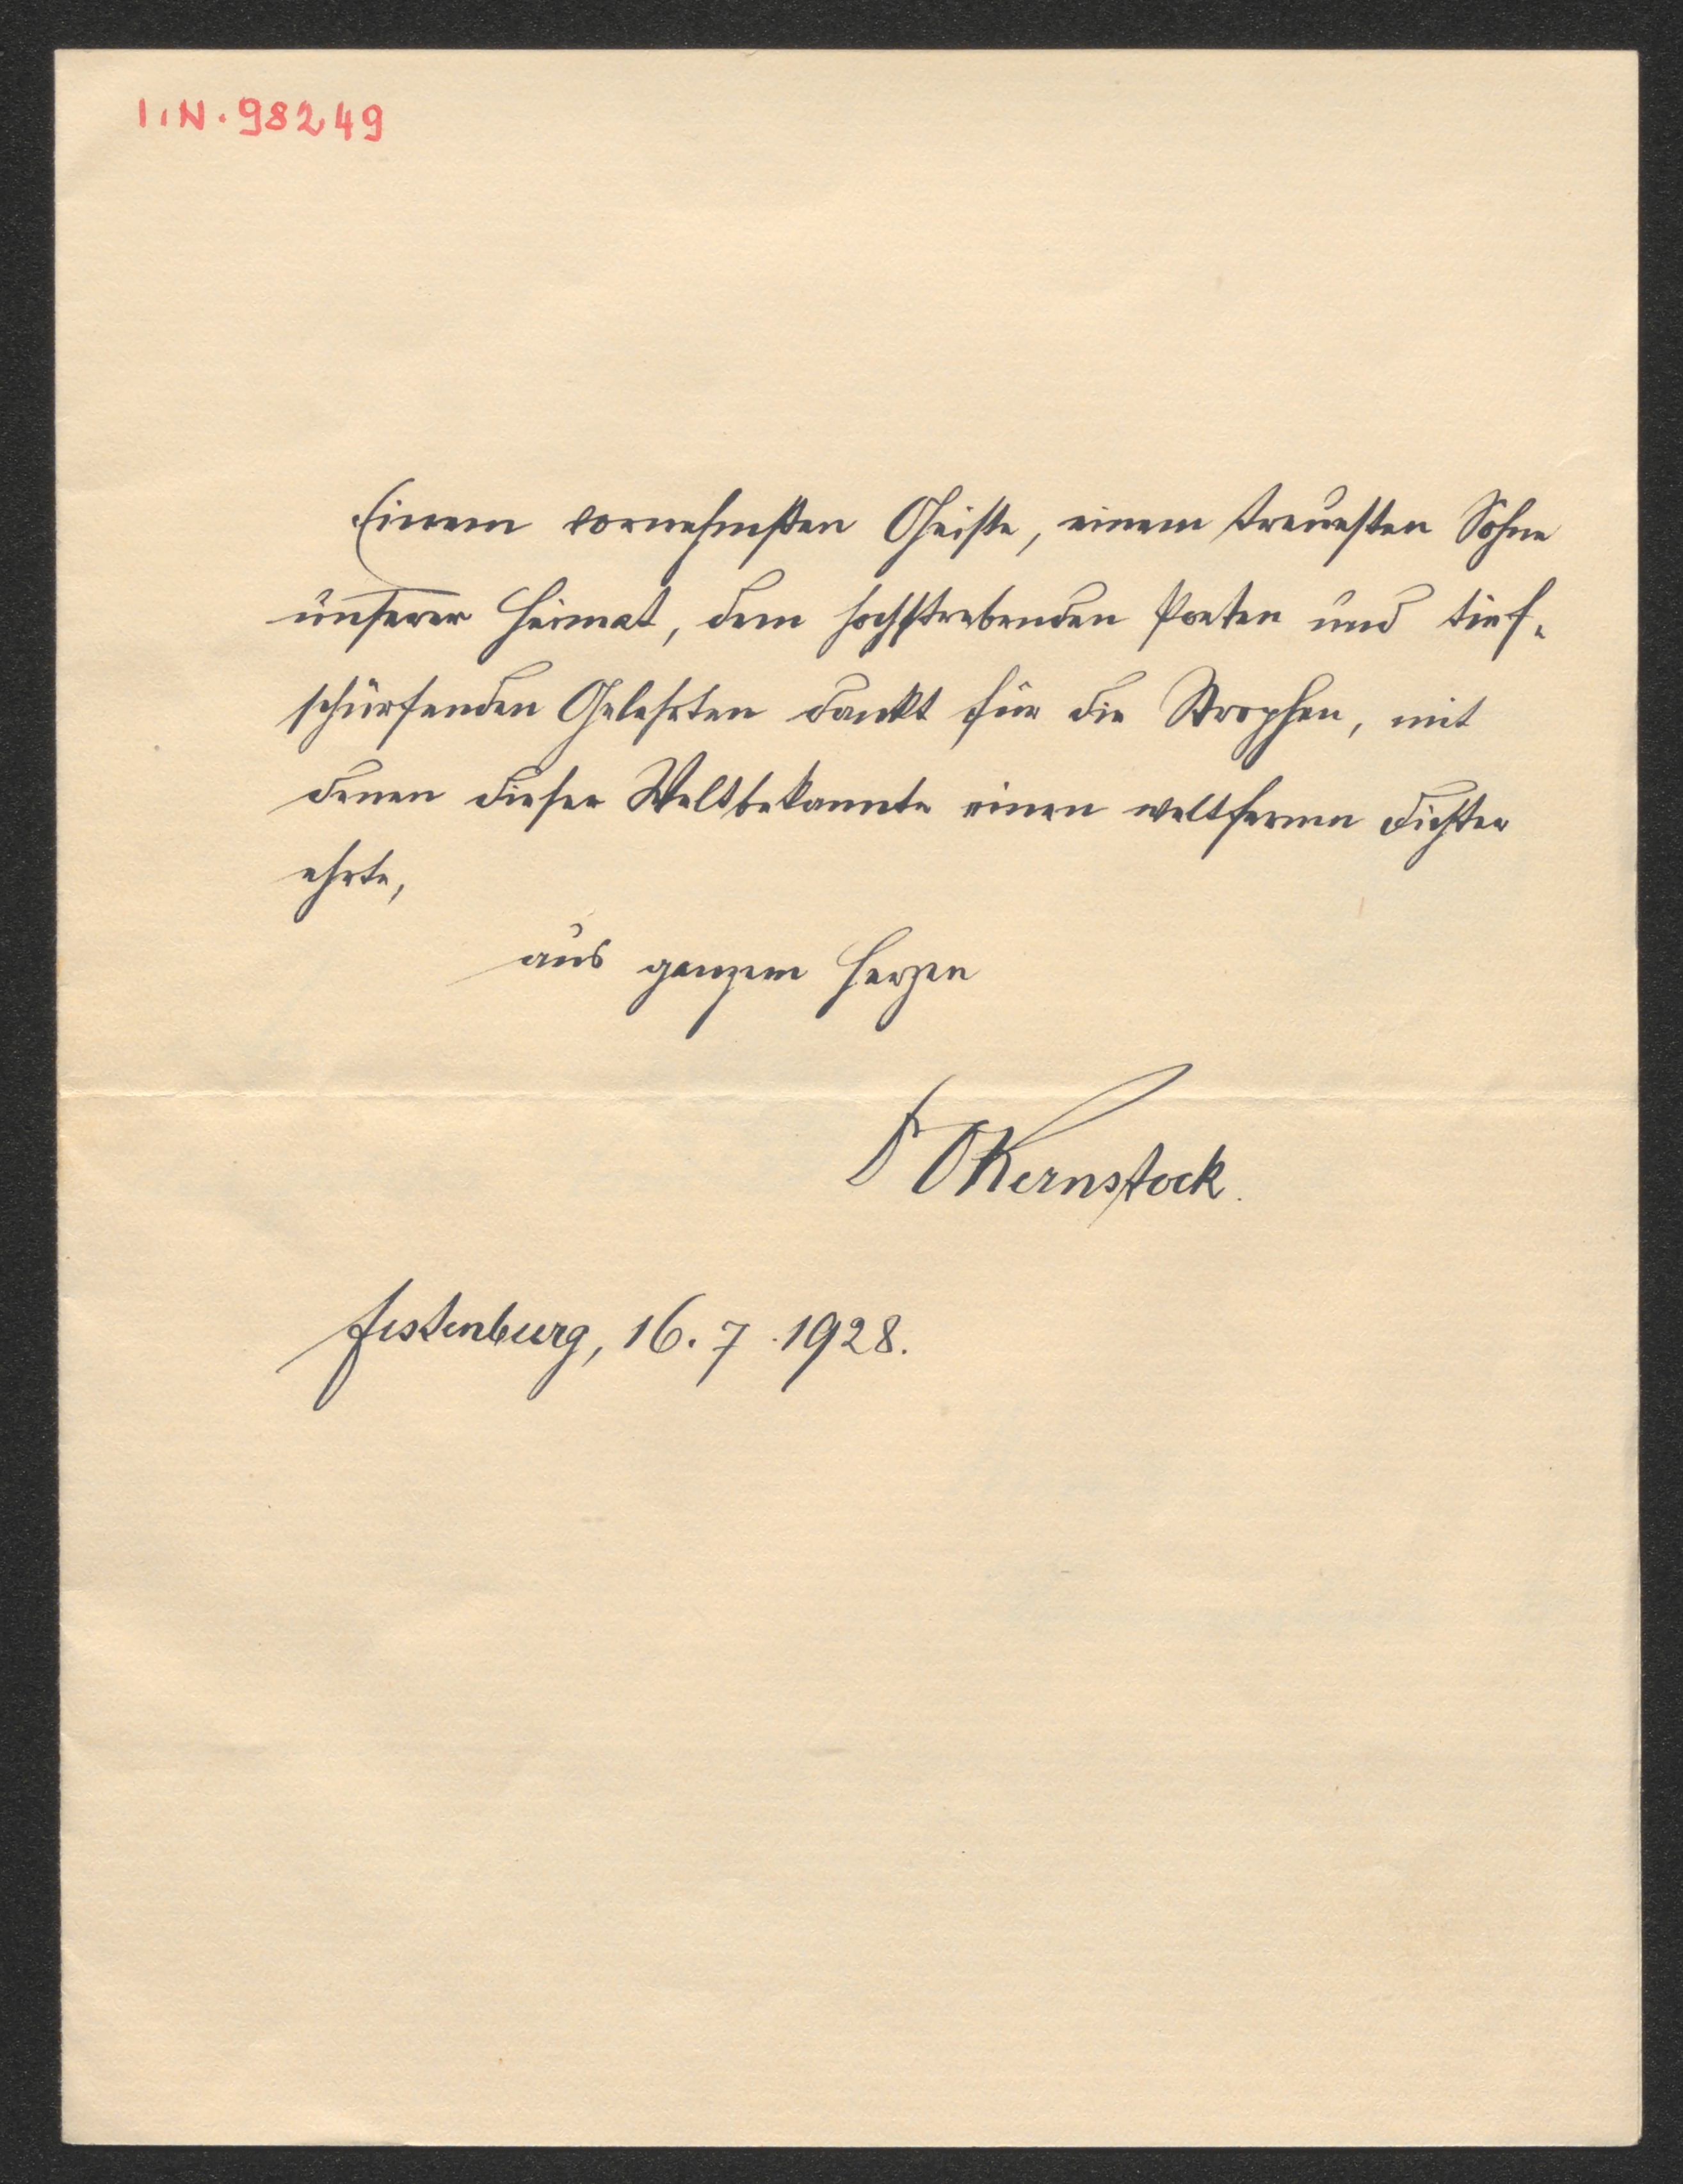 I.N. 98249
Einem vornehmsten Geiste, einem treuesten Sohne
unserer Heimat, dem hochstrebenden Poeten und tief-
schürfenden Gelehrten dankt für die Strophen, mit
denen dieser Weltbekannte einen weltfernen Dichter
ehrte,
aus ganzem Herzen
Dr OKernstock.
Festenburg, 16. 7. 1928.